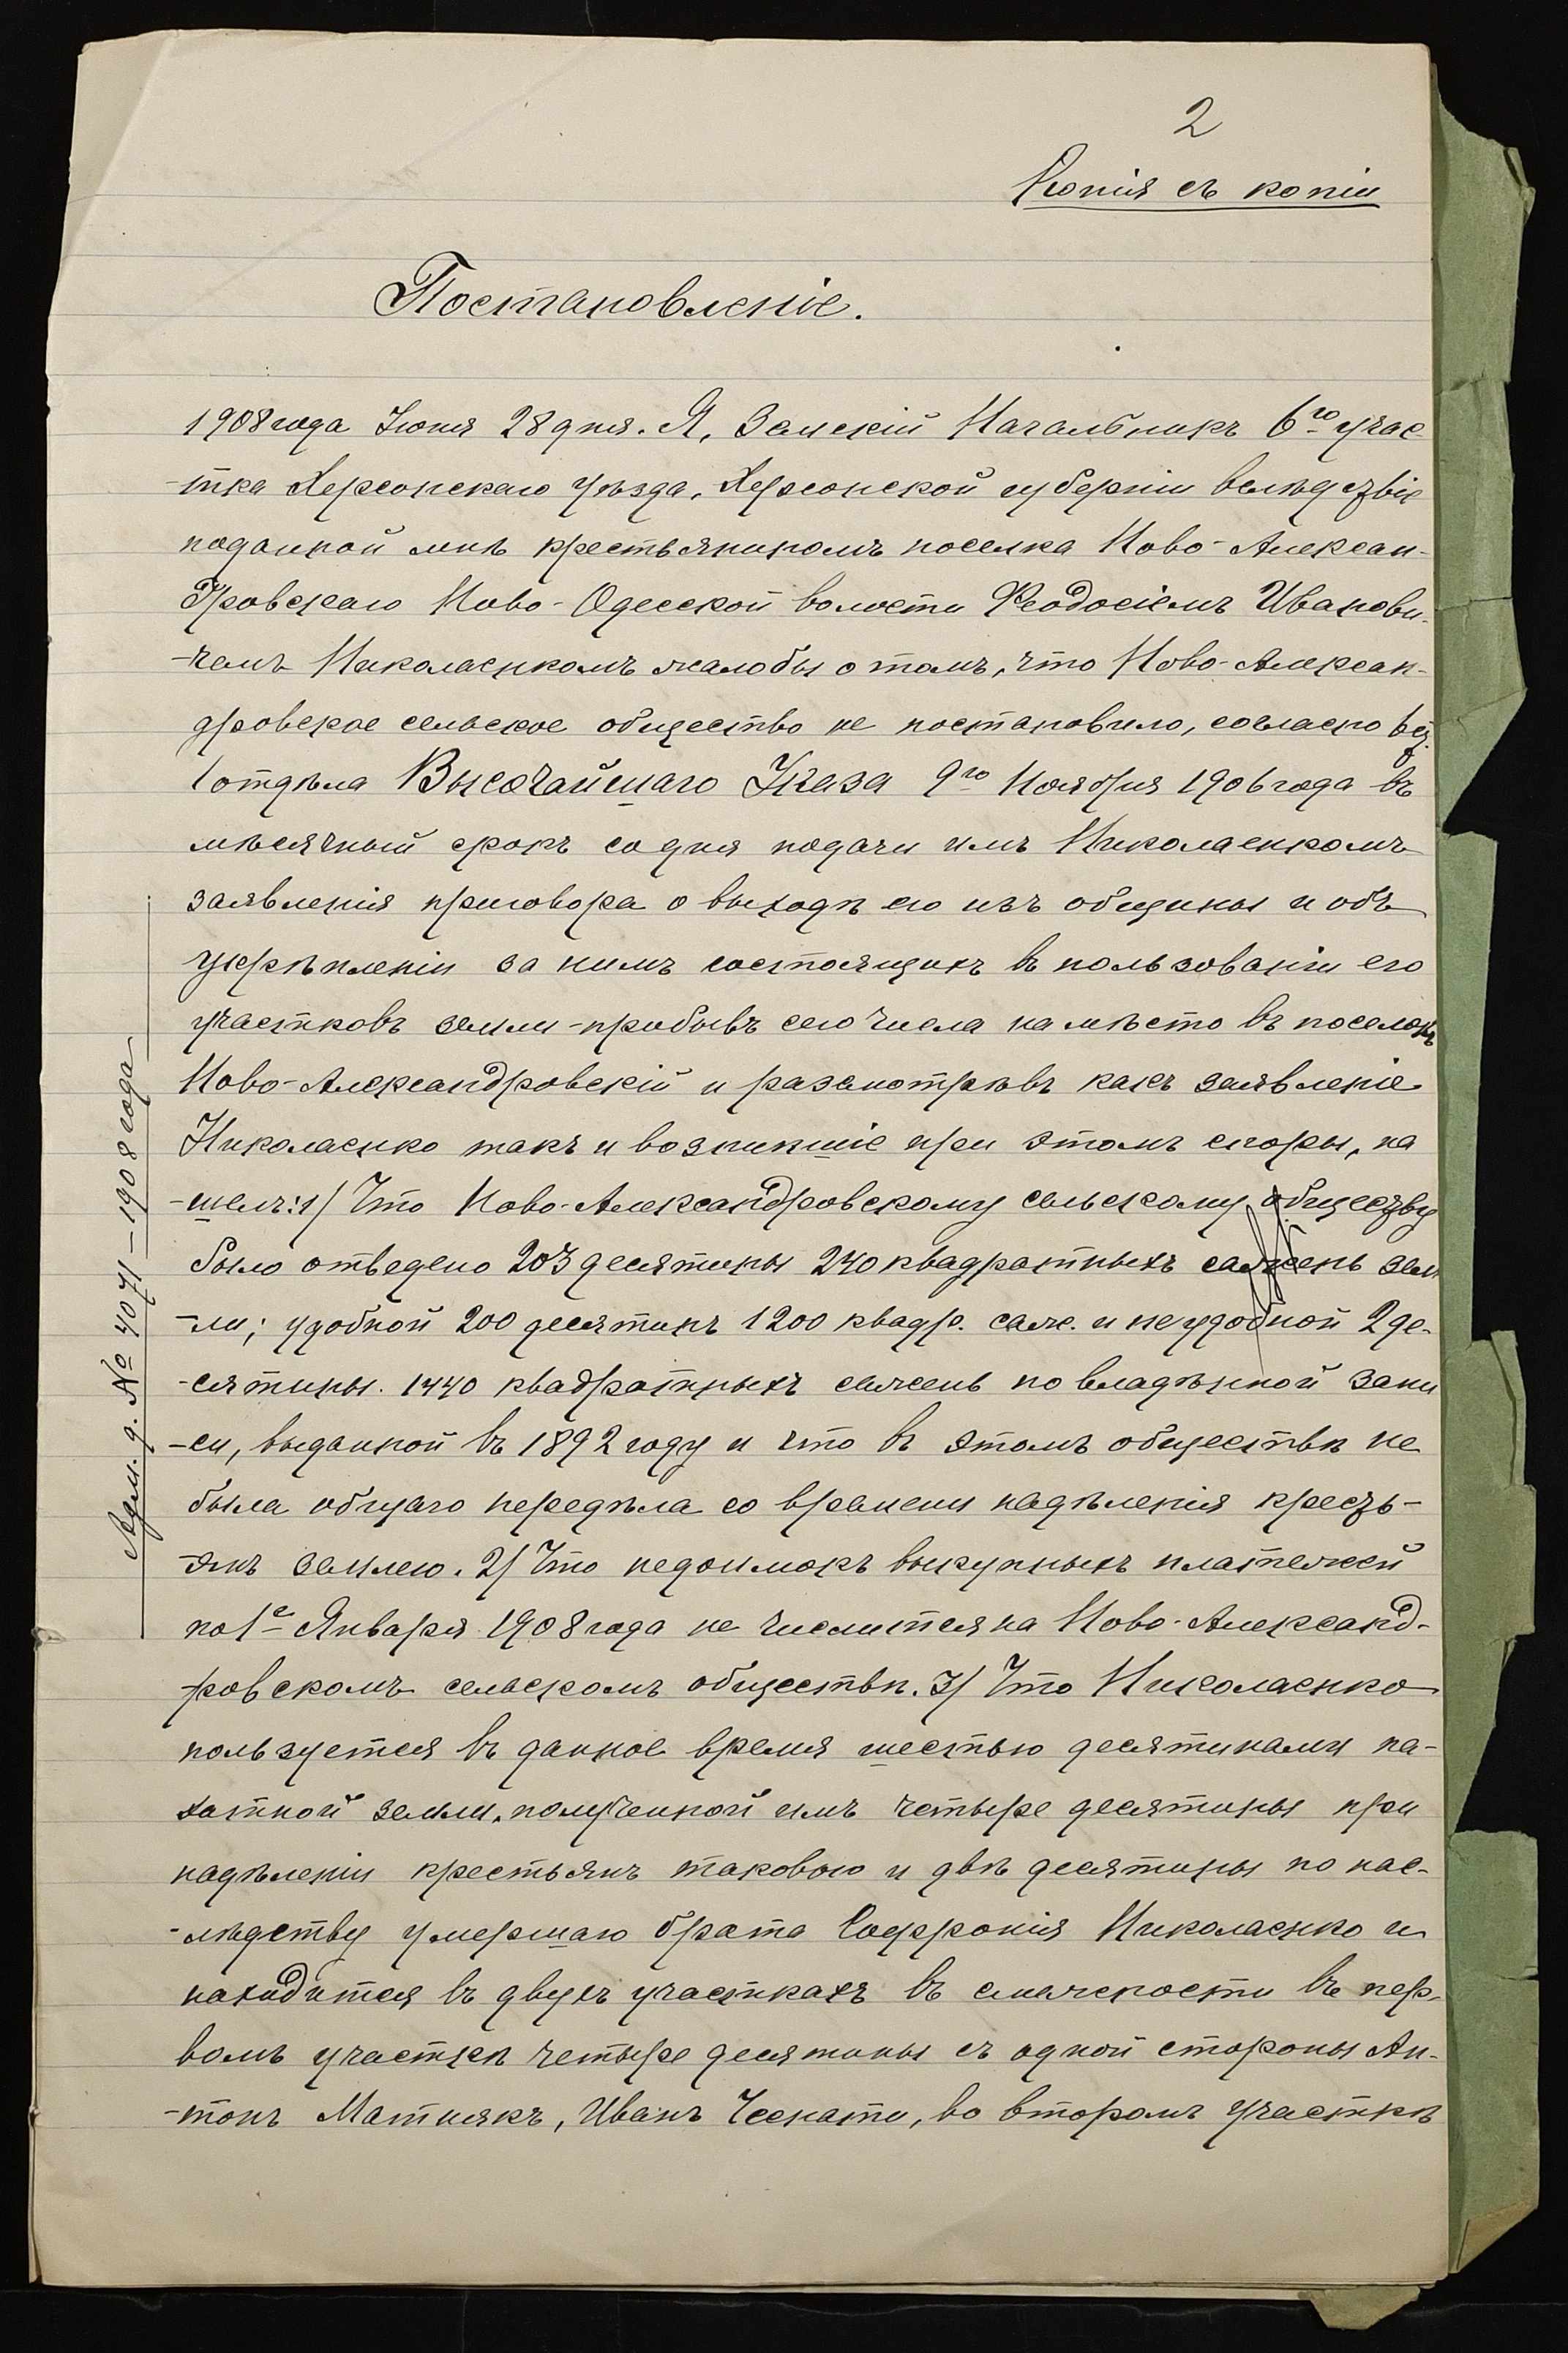 2
Копія съ копіи
Постановленіе.
1908 года Іюня 28 дня. Я, Земскій Начальникъ 6го учас-
-тка Херсонскаго уѣзда, Херсонской губерніи вслѣдствіе
поданной мнѣ крестьяниномъ поселка Ново-Алексан-
дровскаго Ново-Одесской волости Феодосіемъ Иванови-
-чемъ Николаенкомъ жалобы о томъ, что Ново-Алексан-
дровское сельское общество не постановило, согласно 6 ст.
1 отдѣла Высочайшаго Указа 9го Ноября 1906 года въ
мѣсячный срокъ со дня подачи имъ Николаенкомъ
заявленія приговора о выходѣ его изъ общины и объ
укрѣпленіи за нимъ состоящихъ въ пользованіи его
участковъ земли-прибывъ сего числа на мѣсто въ поселокъ
Ново-Александровскій и разсмотрѣвъ какъ заявленіе
Николаенко такъ и возникшіе при этомъ споры, на
-шелъ: 1/ Что Ново-Александровскому сельскому обществу
было отведено 203 десятины 240 квадратныхъ сажень зем
-ли; удобной 200 десятинъ 1200 квадр. саж. и неудобной 2 де-
-сятины. 1440 квадратныхъ сажень по владѣнной запи
-си, выданной въ 1892 году и что въ этомъ обществѣ не
была общаго передѣла со времени надѣленія кресть-
-янъ землею. 2/ Что недоимокъ выкупныхъ платежей
по 1е Января 1908 года не числится на Ново-Александ-
-ровскомъ сельскомъ обществѣ. 3/ Что Николаенко
пользуется въ данное время шестью десятинами па-
хатной земли, полученной имъ четыре десятины при
надѣленіи крестьянъ таковою и двѣ десятины по нас-
-лѣдству умершаго брата Софронія Николаенко и
находится въ двухъ участкахъ въ смежности въ пер-
вомъ участкѣ четыре десятины съ одной стороны Ан-
-тонъ Матнякъ, Иванъ во второмъ участкѣ
Адм. д. № 4071 - 1908 года